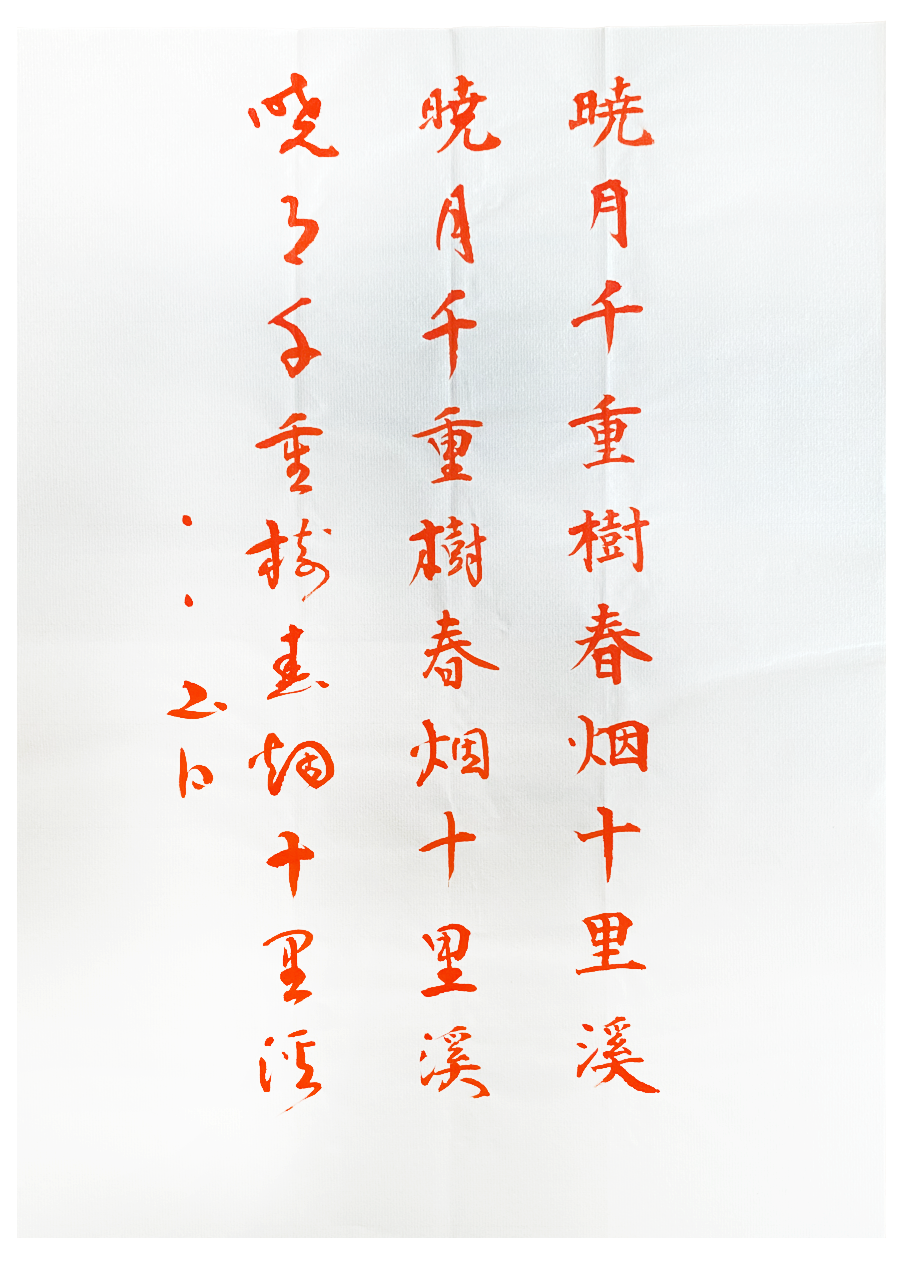 暁月千重樹春烟十里溪
暁月千重樹春烟十里溪
暁月千重樹春烟十里溪